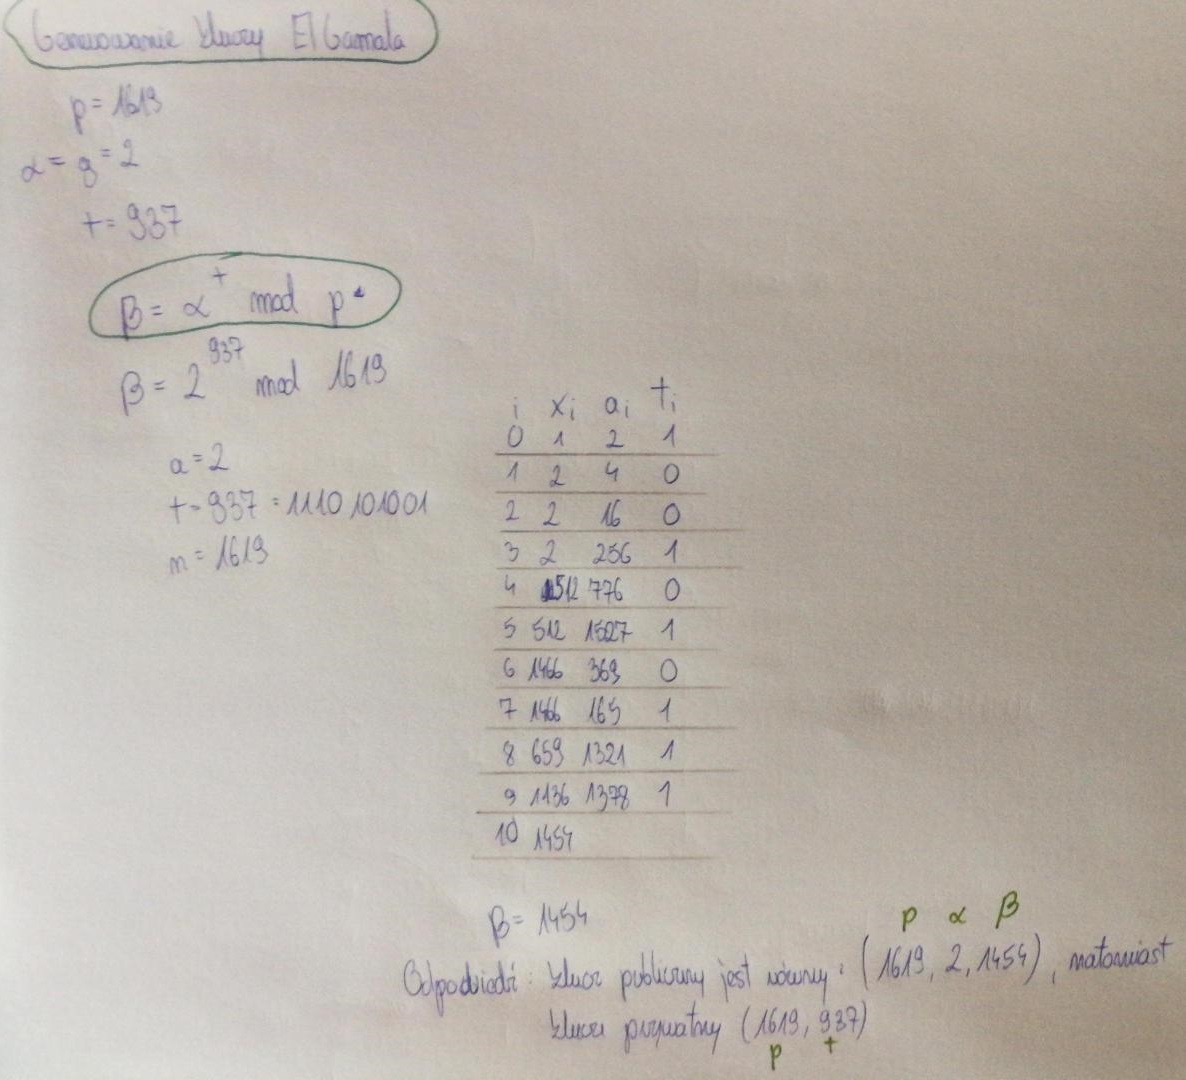 Generowanie kluczy ElGamala
p = 1619
α = g = 2
t = 937
β = α^t mod p
β = 2^937 mod 1619
a = 2
t = 937 = 1110101001
n = 1619
i xi ai ti
0 1 2 1
1 2 4 0
2 2 16 0
3 2 256 1
4 512 776 0
5 512 1527 1
6 1466 369 0
7 1466 165 1
8 659 1321 1
9 1136 1378 1
10 1454
β = 1454
p α β
Odpowiedź: klucz publiczny jest równy: (1619, 2, 1454), natomiast
klucz prywatny (1619, 937)
p t